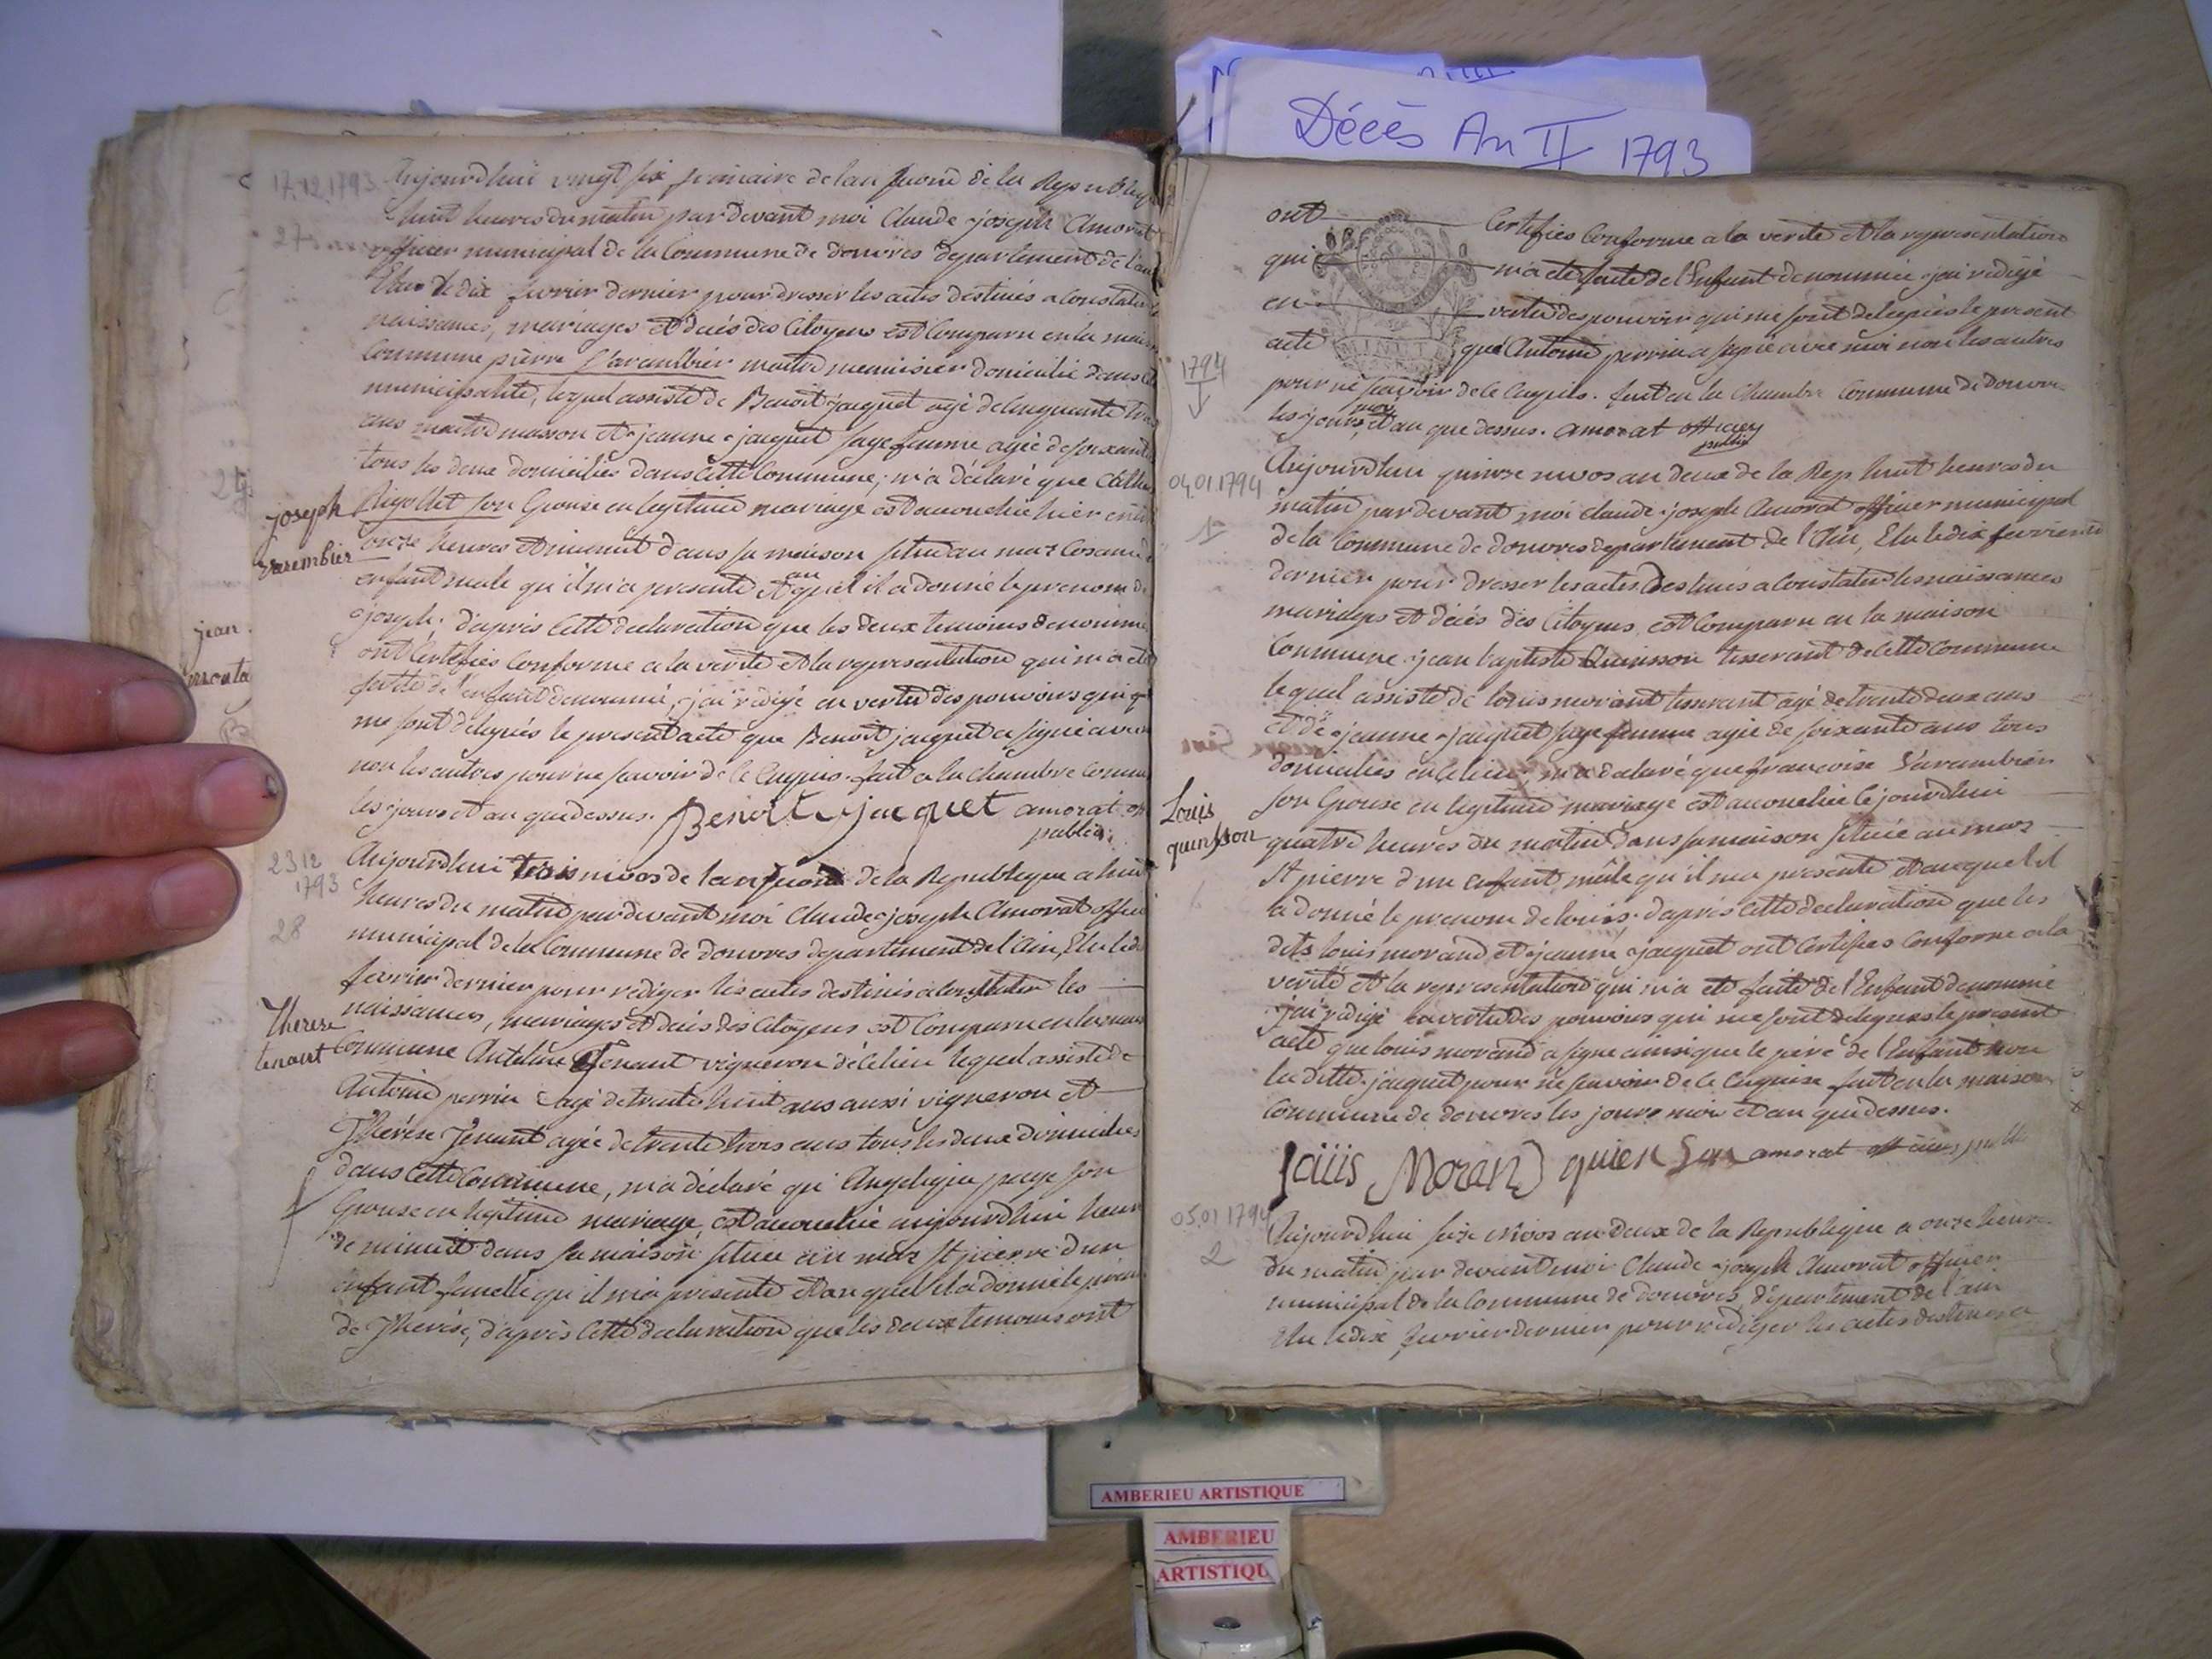 Décès An II 1793
17.12.1793
27
Aujourdhui vingt six frimaire de lan second de la Republique
huit heures du matin par devant moi Claude joseph Amorat
officier municipal de la Commune de douvres departement de l'ain
Elu le dix fevrier dernier pour dresser les actes destinés a Constater
naissances, mariages et décès des Citoyens est Comparu en la maison
Commune pierre Varambier maitre menuisier domicilié dans
municipalité, lequel assisté de Benoit jacquet agé de Cinquante trois
ans maitre masson et jeanne jacquet sage femme agée de soixante
tous les deux domiciliés dans Cette Commune, m'a déclaré que
joseph
varembier
Rigollet son Epouse en legitime mariage est accouchée hier
onze heures et minuit dans sa maison située au mas
enfant male qu'il m'a presenté et auquel il a donné le prenom de
joseph. d'après Cette declaration que les deux temoins denommé
ont Certifiés Conforme a la verité et la representation qui m'a été
faitte de l'enfant denommé, j'ai redigé en vertu des pouvoirs qui
me sont delegués le present acte que Benoit jacquet a signé avec
non les autres pour ne savoir de Ce Enquis. fait a la chambre Commune
les jours et an que dessus. Benoit jacquet amorat
public
23 12
1793
28
Aujourdhui trois nivos de lan second de la Republique a huit
heures du matin par devant moi Claude joseph Amorat officier
municipal de la Commune de douvres departement de l'Ain, Elu le dix
fevrier dernier pour rediger les actes destinés a Constater les
naissances, mariages et décès des Citoyens est Comparu en la maison
Therese
tenant
Commune Antelme Tenant vigneron de Ce lieu lequel assisté de
Antoine perrin agé de trente huit ans aussi vigneron et
Thérése Tenant agée de trente trois ans tous les deux domiciliés
dans Cette Commune, m'a déclaré qu' Angelique page son
Epouse en legitime mariage, est accouchée aujourdhui heure
de minuit dans sa maison située au mas St pierre d'un
enfant femelle qu'il m'a presenté et auquel il a donné le prenom
de Therése, d'après Cette declaration que les deux temoins ont
jean
ont Certifies Conforme a la verité et la representation
qui m'a eté faite de l'Enfant denommée j'ai redigé
en vertu des pouvoir qui me sont delegués le present
acte que Antoine perrin a signé avec moi non les autres
pour ne savoir de Ce Enquis. fait en la Chambre Commune de douvre
les jours, mois et an que dessus. amorat officier
public
1794
04.01.1794
1
Aujourdhui quinze nivos an deux de la Rep. huit heures du
matin par devant moi claude joseph Amorat officier municipal
de la Commune de douvres departement de l'Ain, Elu le dix fevrier
dernier pour dresser les actes Destinés a Constater les naissances
mariages et décès des Citoyens, est Comparu en la maison
Commune jean baptiste Quinsson tisserant de Cette Commune
lequel assisté de louis morand tisserant agé de trente deux ans
et de jeanne jacquet sage femme agée de soixante ans tous
domiciliés en Ce lieu, m'a déclaré que francoise Varambier
Louis
quinsson
son Epouse en legitime mariage est accouchée Ce jourdhui
quatre heures du matin dans sa maison située au mas
St pierre d'un enfant mâle qu'il m'a presenté et auquel il
a donné le prenom de louis, d'après Cette declaration que les
dits louis morand et jeanne jacquet ont Certifies Conforme a la
verité et la representation qui m'a eté faite de l'Enfant denommé
j'ai redigé en vertu des pouvoirs qui me sont delegués le present
acte que louis morand a signé ainsi que le père de l'Enfant non
la ditte jacquet pour ne savoir de Ce Enquise fait en la maison
Commune de douvres les jours mois et an que dessus.
louis Morand quienson amorat officier public
05.01 1794
2
Aujourdhui seize Nivos an Deux de la Republique a onze heures
du matin par devant moi Claude joseph Amorat officier
municipal de la Commune de douvres, departement de l'ain
Elu le dix fevrier dernier pour rediger les actes destinés a
AMBERIEU ARTISTIQUE
AMBERIEU
ARTISTIQU